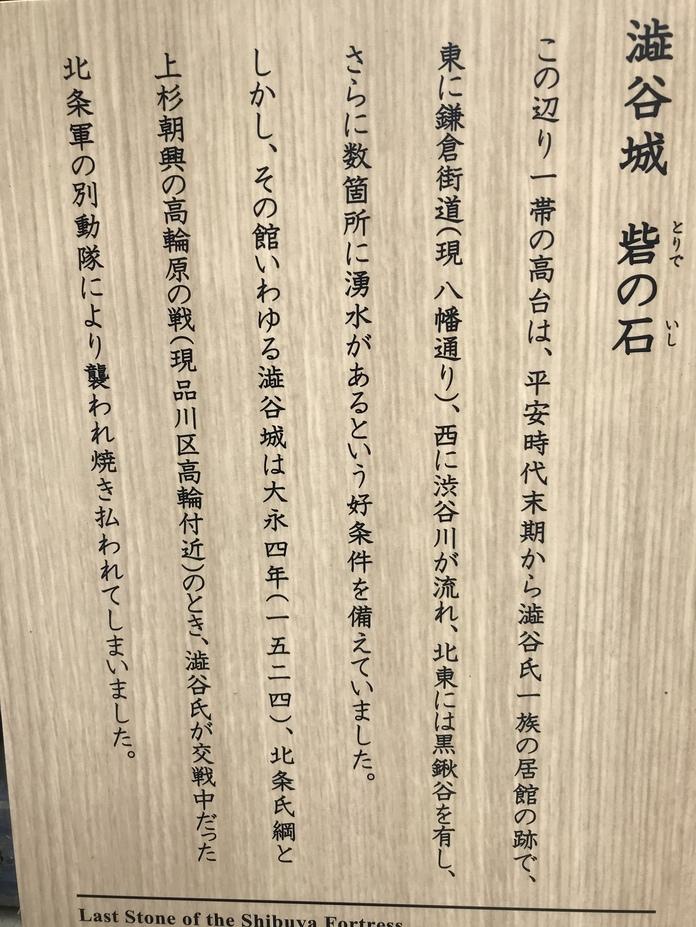 澁谷城 砦の石
とりで いし
この辺り一帯の高台は、平安時代末期から澁谷氏一族の居館の跡で、
東に鎌倉街道(現 八幡通り)、西に渋谷川が流れ、北東には黒鍬谷を有し、
さらに数箇所に湧水があるという好条件を備えていました。
しかし、その館いわゆる澁谷城は大永四年(一五二四)、北条氏綱と
上杉朝興の高輪原の戦(現 品川区高輪付近)のとき、澁谷氏が交戦中だった
北条軍の別動隊により襲われ焼き払われてしまいました。
Last Stone of the Shibuya Fortress